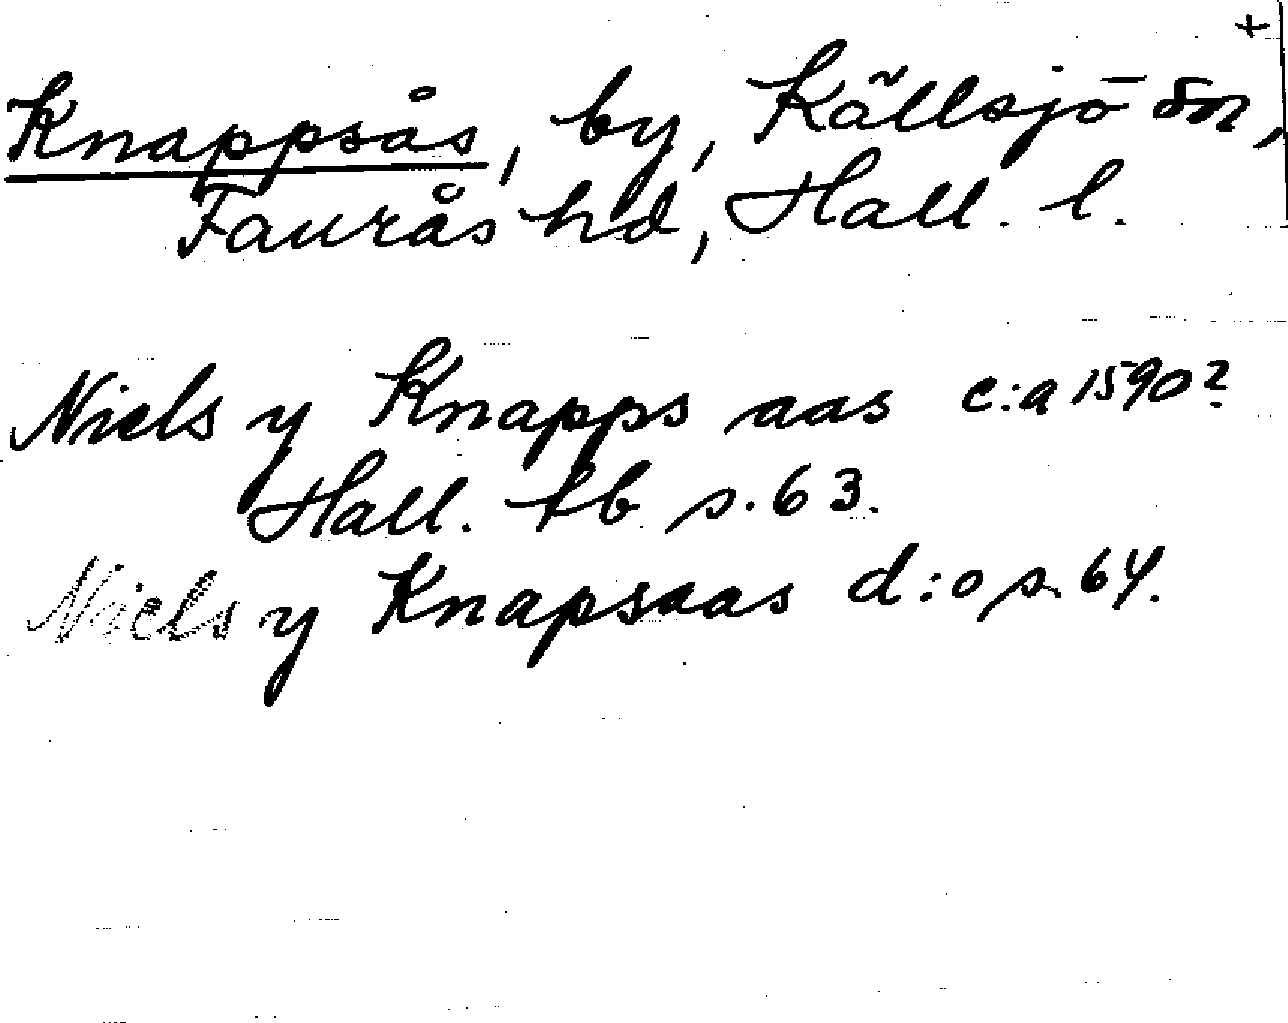 +
Knappsås, by, Källsjö sn,
Faurås hd, Hall. l.
Niels y Knapps aas c:a 1590?
Hall. tb s. 63.
Niels y Knapsaas d:o s. 64.